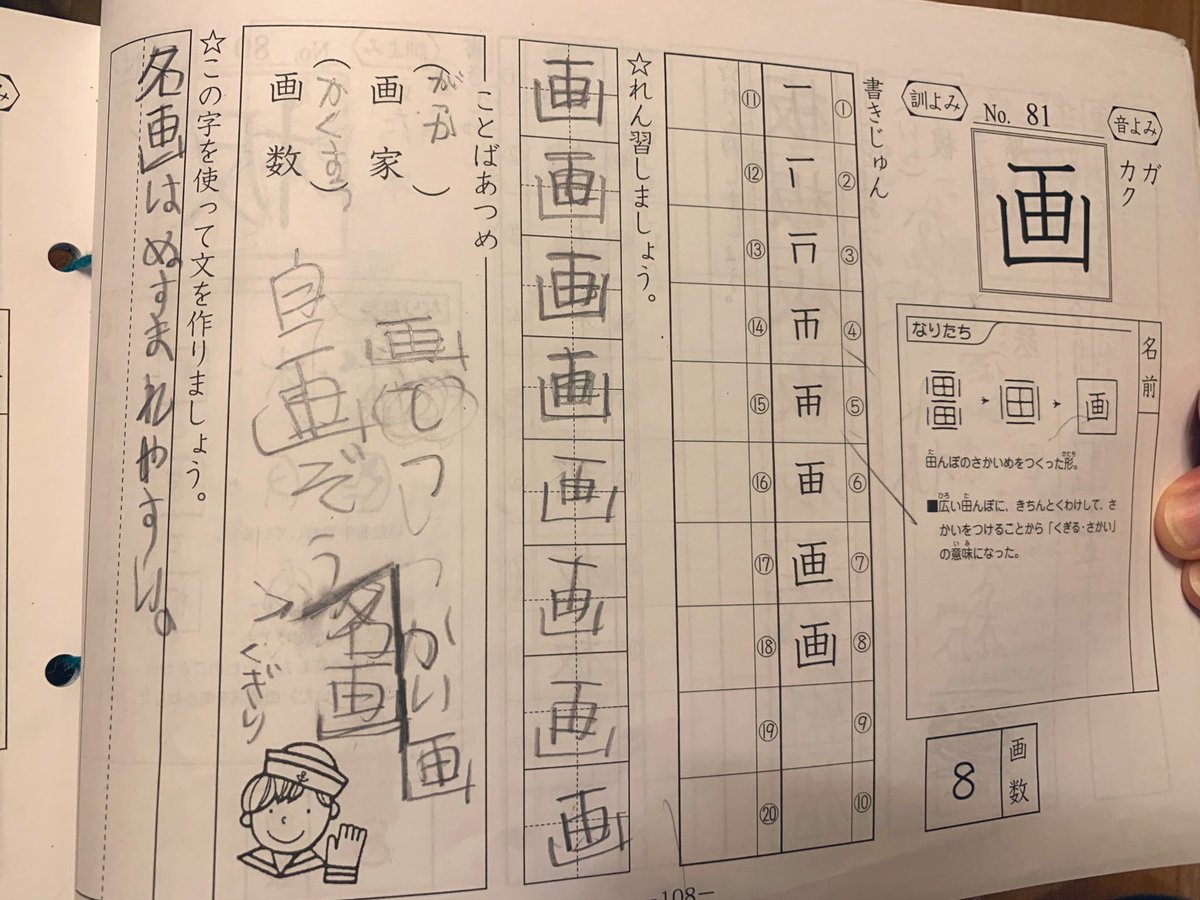 音よみ
ガ
カク
No. 81
訓よみ
画
名前
なりたち
画
田んぼのさかいめをつくった形。
■広い田んぼに、きちんとくわけして、さ
かいをつけることから「くぎる・さかい」
の意味になった。
画数
8
書きじゅん
① ② ③ ④ ⑤ ⑥ ⑦ ⑧ ⑨ ⑩
画
⑪ ⑫ ⑬ ⑭ ⑮ ⑯ ⑰ ⑱ ⑲ ⑳
☆れん習しましょう。
画
画
画
画
画
画
画
画
ことばあつめ
(がか)
画家
(かくすう)
画数
画
かい画
自画ぞう
名画
くぎり
☆この字を使って文を作りましょう。
名画はぬすまれやすい。
-108-